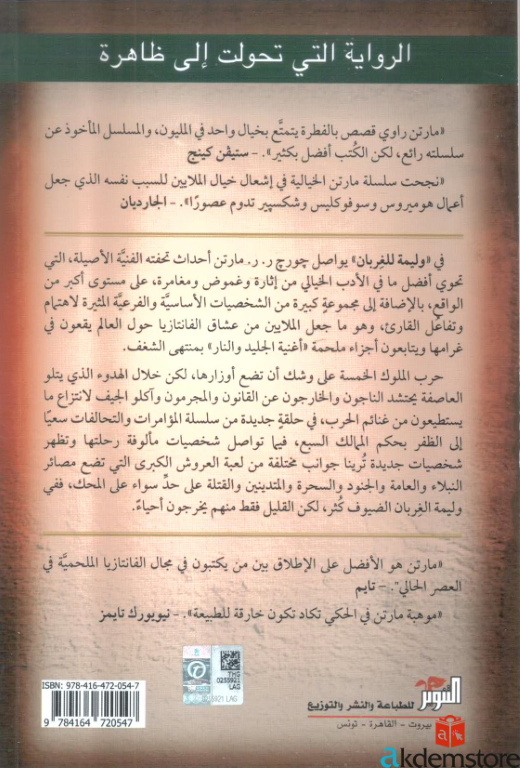 الرواية التي تحولت إلى ظاهرة
«مارتن راوي قصص بالفطرة يتمتَّع بخيال واحد في المليون، والمسلسل المأخوذ عن
سلسلته رائع، لكن الكُتب أفضل بكثير». – ستيڤن كينج
«نجحت سلسلة مارتن الخيالية في إشعال خيال الملايين للسبب نفسه الذي جعل
أعمال هوميروس وسوفوكليس وشكسپير تدوم عصورًا». – الجارديان
في «وليمة للغِربان» يواصل چورچ ر. ر. مارتن أحداث تحفته الفنيَّة الأصيلة، التي
تحوي أفضل ما في الأدب الخيالي من إثارة وغموض ومغامرة، على مستوى أكبر من
الواقع، بالإضافة إلى مجموعةٍ كبيرة من الشخصيات الأساسيَّة والفرعيَّة المثيرة لاهتمام
وتفاعُل القارئ، وهو ما جعل الملايين من عشاق الفانتازيا حول العالم يقعون في
غرامها ويتابعون أجزاء ملحمة «أغنية الجليد والنار» بمنتهى الشغف.
حرب الملوك الخمسة على وشك أن تضع أوزارها، لكن خلال الهدوء الذي يتلو
العاصفة يحتشد الناجون والخارجون عن القانون والمجرمون وآكلو الجيف لانتزاع ما
يستطيعون من غنائم الحرب، في حلقةٍ جديدة من سلسلة المؤامرات والتحالفات سعيًا
إلى الظفر بحكم الممالك السبع، فيما تواصل شخصيات مألوفة رحلتها وتظهر
شخصيات جديدة تُرينا جوانب مختلفة من لعبة العروش الكبرى التي تضع مصائر
النبلاء والعامة والجنود والسحرة والمتدينين والقتلة على حدٍّ سواء على المحك، ففي
وليمة الغِربان الضيوف كُثر، لكن القليل فقط منهم يخرجون أحياءً.
«مارتن هو الأفضل على الإطلاق بين من يكتبون في مجال الفانتازيا الملحميَّة في
العصر الحالي". – تايم
«موهبة مارتن في الحكي تكاد تكون خارقة للطبيعة». – نيويورك تايمز
ISBN: 978-416-472-054-7
9 784164 720547
THG
0255921
LAG
التنوير للطباعة والنشر والتوزيع
بيروت - القاهرة - تونس
akdemstore